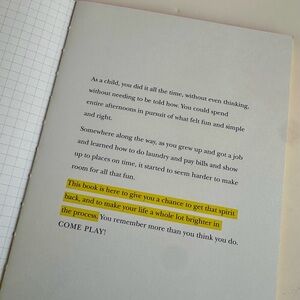 As a child, you did it all the time, without even thinking,
without needing to be told how. You could spend
entire afternoons in pursuit of what felt fun and simple
and right.
Somewhere along the way, as you grew up and got a job
and learned how to do laundry and pay bills and show
up to places on time, it started to seem harder to make
room for all that fun.
This book is here to give you a chance to get that spirit
back, and to make your life a whole lot brighter in
the process. You remember more than you think you do.
COME PLAY!